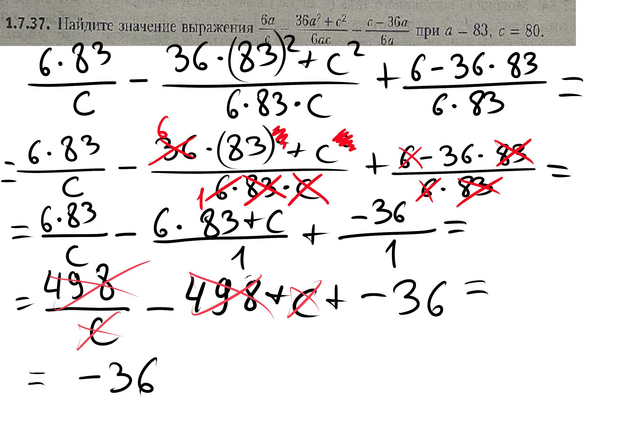 1.7.37. Найдите значение выражения 6a/c − (36a² + c²)/(6ac) − (c − 36a)/(6a) при a − 83, c = 80.
6·83/c − (36·(83)² + c²)/(6·83·c) + (6 − 36·83)/(6·83) =
= 6·83/c − (6 36·(83) + c)/(1 6·83·c) + (6 − 36·83)/(6·83) =
= 6·83/c − (6·83 + c)/1 + −36/1 =
= 498/c − 498 + c + −36 =
= −36